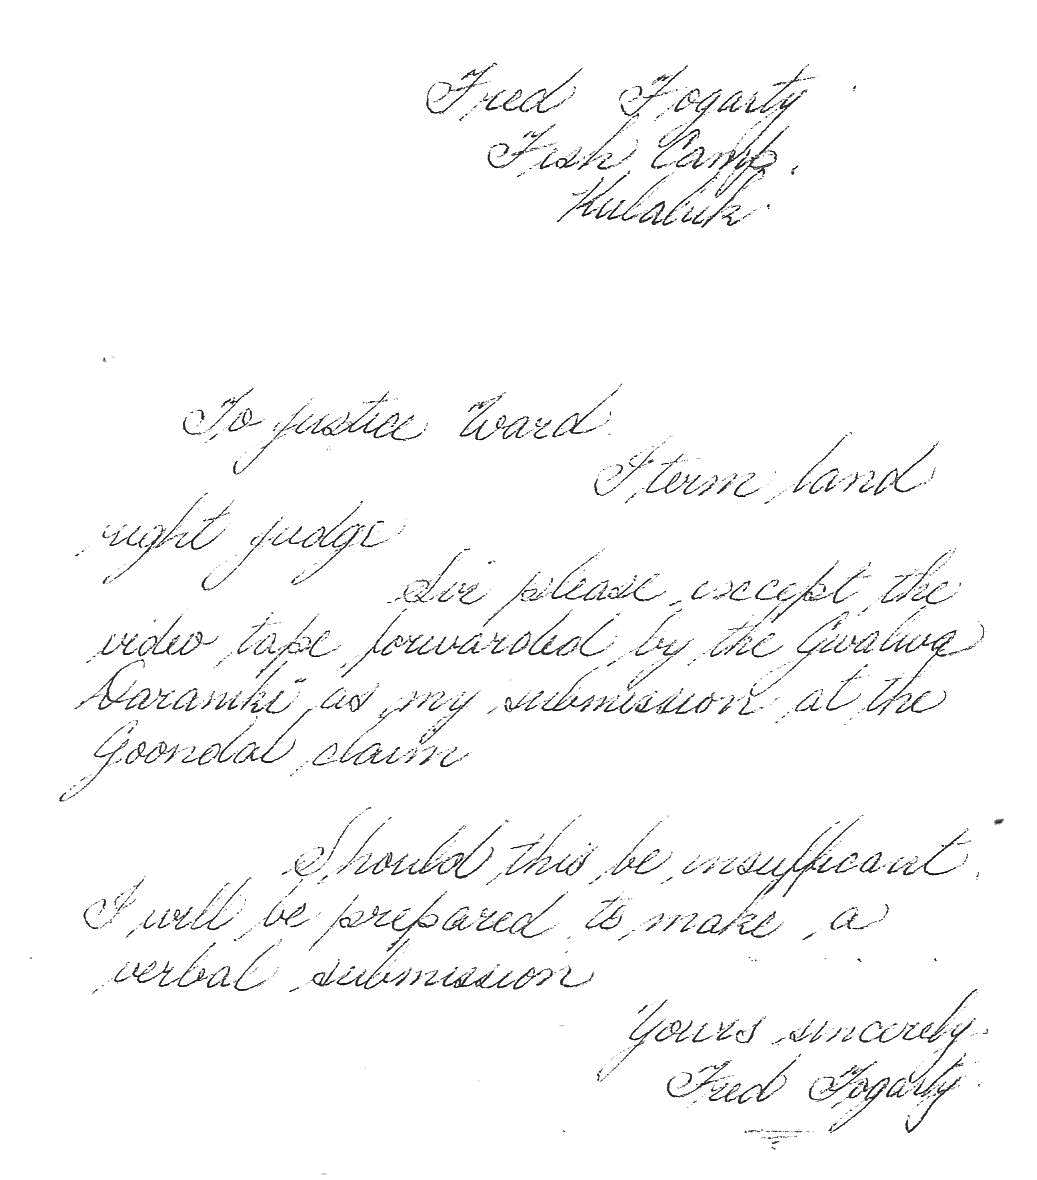 Fred Fogarty
Fish Camp.
Kulaluk.
To justice Ward
Interm land
right judge
Sir please except the
video tape forwarded by the Gwalwa
Daraniki as my submission at the
Goondal claim
Should this be insufficant
I will be prepared to make a
verbal submission
Yours sincerely
Fred Fogarty